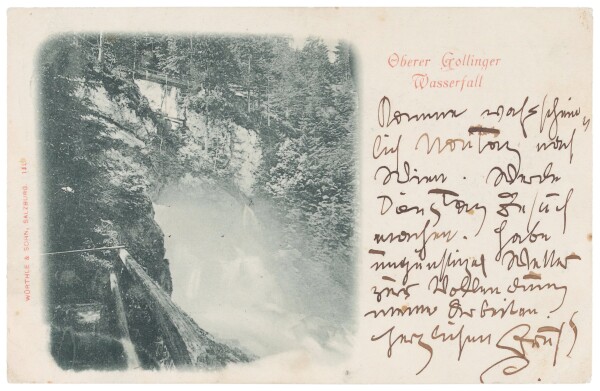 Oberer Gollinger
Wasserfall
Komme wahrschein
lich Montag nach
Wien. Werde
Dienstag Besuch
machen. Habe
ungünstiges Wetter
zur Vollendung
meine Arbeiten.
Herzlichen Gruß
WÜRTHLE & SOHN, SALZBURG.